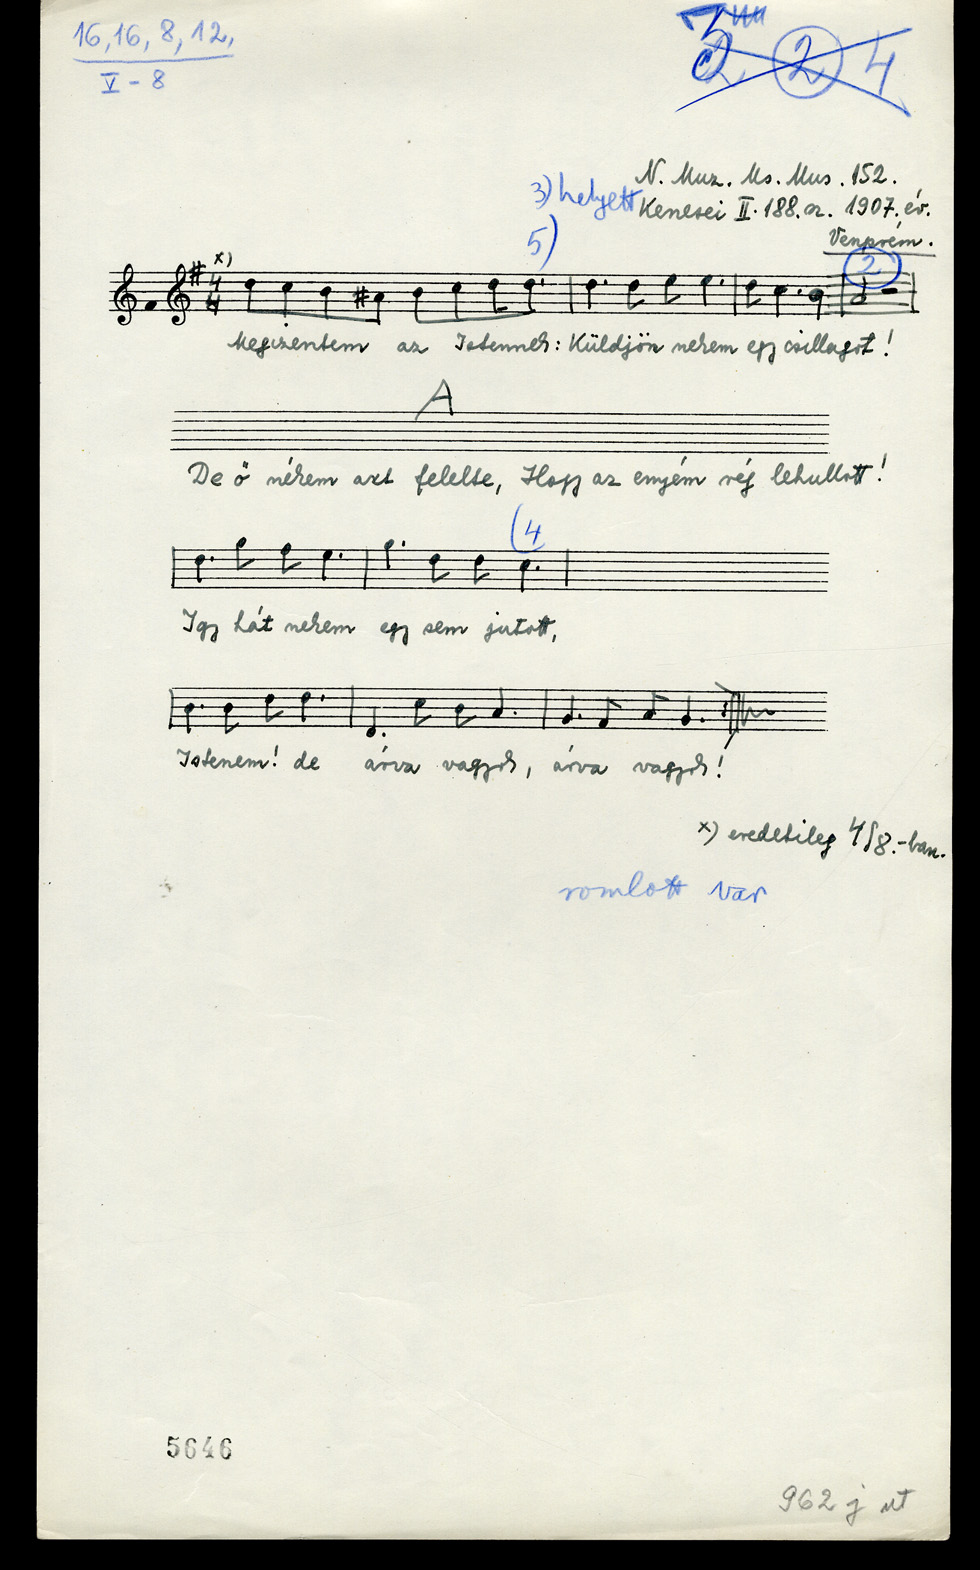 16,16, 8, 12,
V - 8
2 4
N. Muz. Ms. Mus. 152.
3) helyett Kenesei II. 188. sz. 1907. év.
5)
Veszprém.
x)
2
4
4
Megizentem az Istennek: Küldjön nekem egy csillagot!
A
De ő nékem azt felelte, Hogy az enyém rég lehullott!
(4
Igy hát nekem egy sem jutott,
Istenem! de árva vagyok, árva vagyok!
x) eredetileg 4/8.-ban.
romlott var
5646
962 j